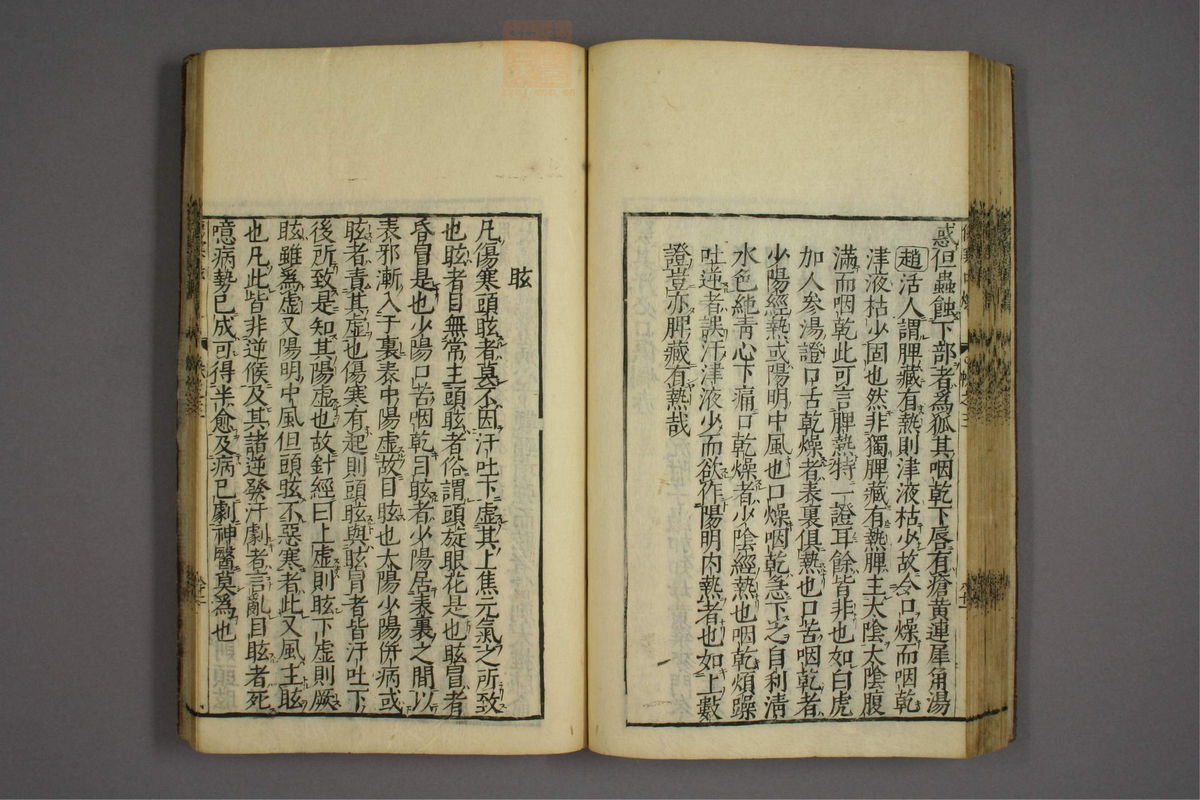 惑但蟲蝕下部者爲狐其咽乾下唇有瘡黃連犀角湯
趙活人謂脾藏有熱則津液枯少故令口燥而咽乾
津液枯少固也然非獨脾藏有熱脾主大陰大陰腹
滿而咽乾此可言脾熱特一證耳餘皆非也如白虎
加人參湯證口舌乾燥者表裏俱熱也口苦咽乾者
少陽經熱或陽明中風也口燥咽乾急下之自利清
水色純青心下痛口乾燥者少陰經熱也咽乾煩躁
吐逆者誤汗津液少而欲作陽明內熱者也如上數
證豈亦脾藏有熱哉
眩
凡傷寒頭眩者莫不因汗吐下虛其上焦元氣之所致
也眩者目無常主頭眩者俗謂頭旋眼花是也眩冒者
昏冒是也少陽口苦咽乾目眩者少陽居表裏之間以
表邪漸入于裏表中陽虛故目眩也太陽少陽併病或
眩者責其虛也傷寒有起則頭眩與眩冒者皆汗吐下
後所致是知其陽虛也故針經曰上虛則眩下虛則厥
眩雖爲虛又陽明中風但頭眩不惡寒者此又風主眩
也凡此皆非逆候及其諸逆發汗劇者言亂目眩者死
噫病勢已成可得半愈及病已劇神醫莫爲也